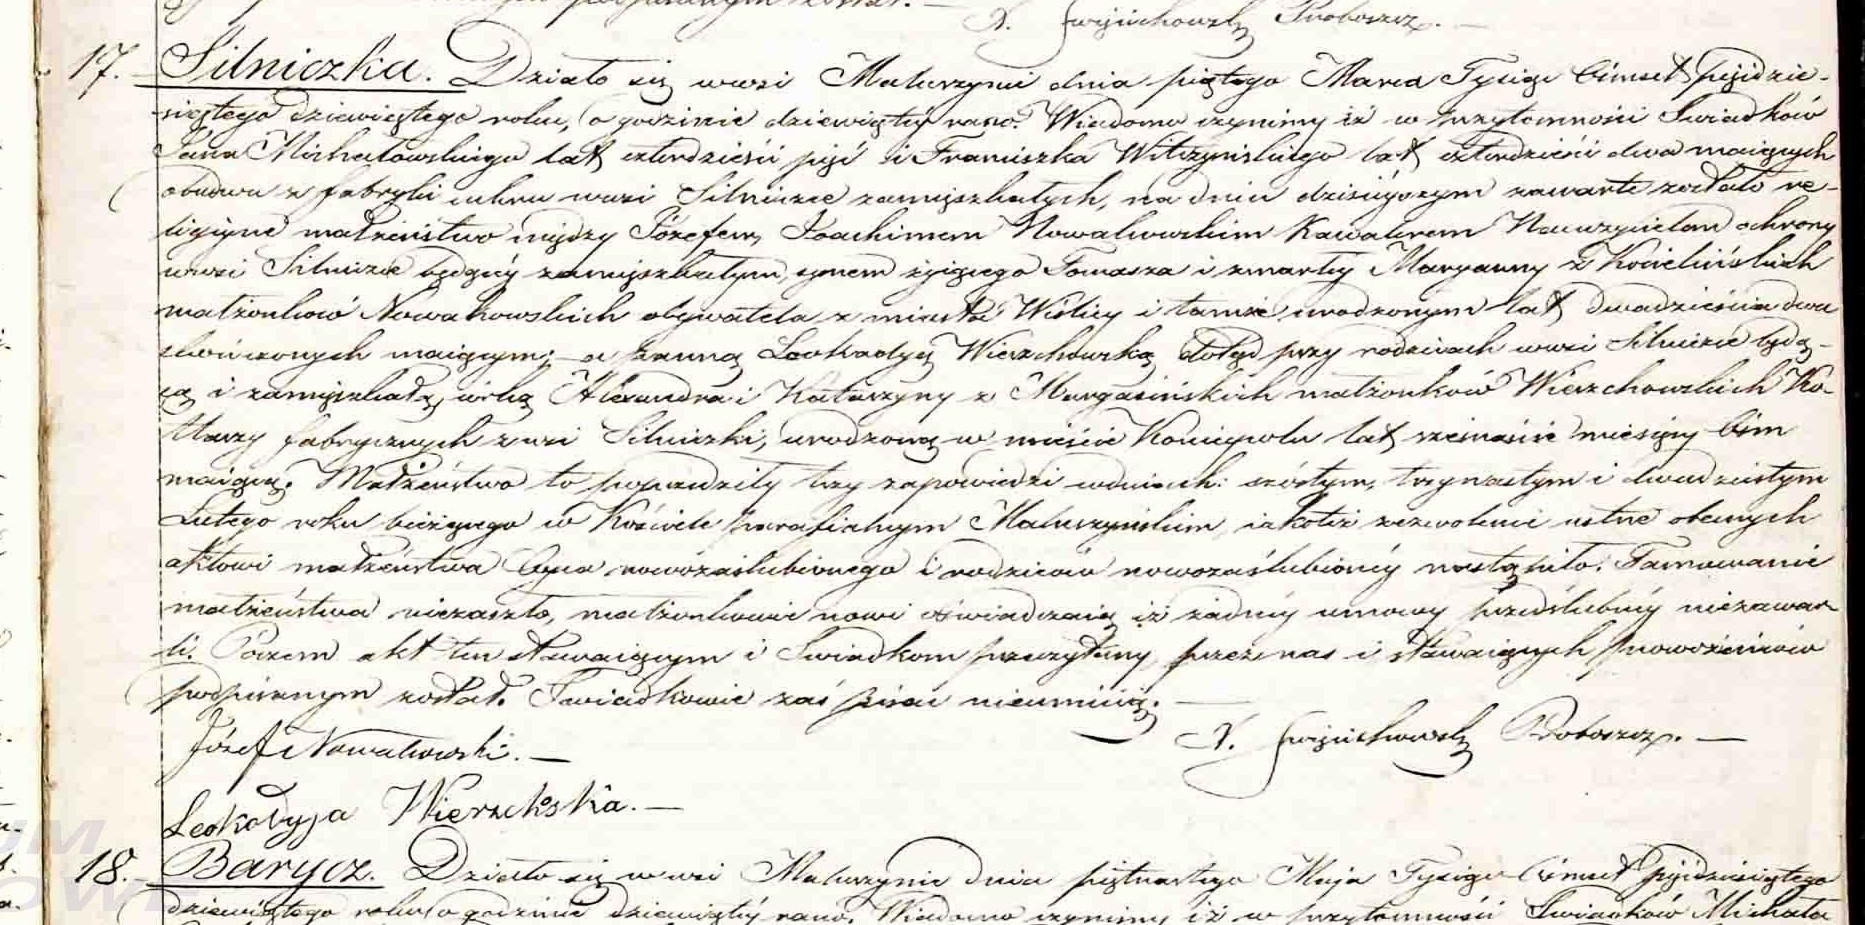 podpisanym został. —
N. Swięcichowski Proboszcz. —
17. Silniczka. Działo się wewsi Maluszynie dnia piątego Marca Tysiąc ośmset pięćdzie-
siątego dziewiątego roku, o godzinie dziewiątéj rano. Wiadomo czynimy iż w przytomności Swiadków
Jana Michałowskiego lat czterdzieści pięć i Franciszka Witczyńskiego lat czterdzieści dwa maiących
obudwu z fabryki cukru wewsi Silniczce zamięszkałych, na dniu dzisiéyszym zawarte zostało re-
ligijne małżeństwo między Józefem Joachimem Nowakowskim Kawalerem Nauczycielem ochrony
wewsi Silniczce będącéj zamięszkałym, synem żyiącego Tomasza i zmarłéj Maryanny z Kocielińskich
małżonków Nowakowskich obywatela z miasta Wiślicy i tamże urodzonym lat dwadzieścia dwa
skończonych maiącym; a panną Leokadyą Wierzchowską dotąd przy rodzicach wewsi Silniczce będą-
cą i zamięszkałą, córką Alexandra i Katarzyny z Margasińskich małżonków Wierzchowskich Ko-
tlarzy fabrycznych zewsi Silniczki, urodzoną w mieście Koniecpolu lat szesnaście miesięcy ośm
maiącą. Małżeństwo to poprzedziły trzy zapowiedzi wdniach: szóstym, trzynastym i dwudziestym
Lutego roku bieżącego w Kościele parafialnym Maluszyńskim, iakoteż zezwolenie ustne obecnych
aktowi małżeństwa Oyca nowozaślubionego i rodziców nowozaślubionéy nastąpiło. Tamowanie
małżeństwa niezaszło, małżonkowie nowi oświadczaią iż żadnéy umowy przedślubnéy niezawar-
li. Poczem akt ten stawaiącym i Swiadkom przeczytany, przez nas i stawaiących nowożeńców
podpisanym został. Swiadkowie zaś pisać nieumieią. —
Józef Nowakowski. — N. Swięcichowski Proboszcz. —
Leokadyja Wierzchska. —
18. Barycz. Działo się wewsi Maluszynie dnia piętnastego Maja Tysiąc ośmset pięćdziesiątego
dziewiątego roku o godzinie dziewiątéj rano. Wiadomo czynimy iż w przytomności Swiadków Michała